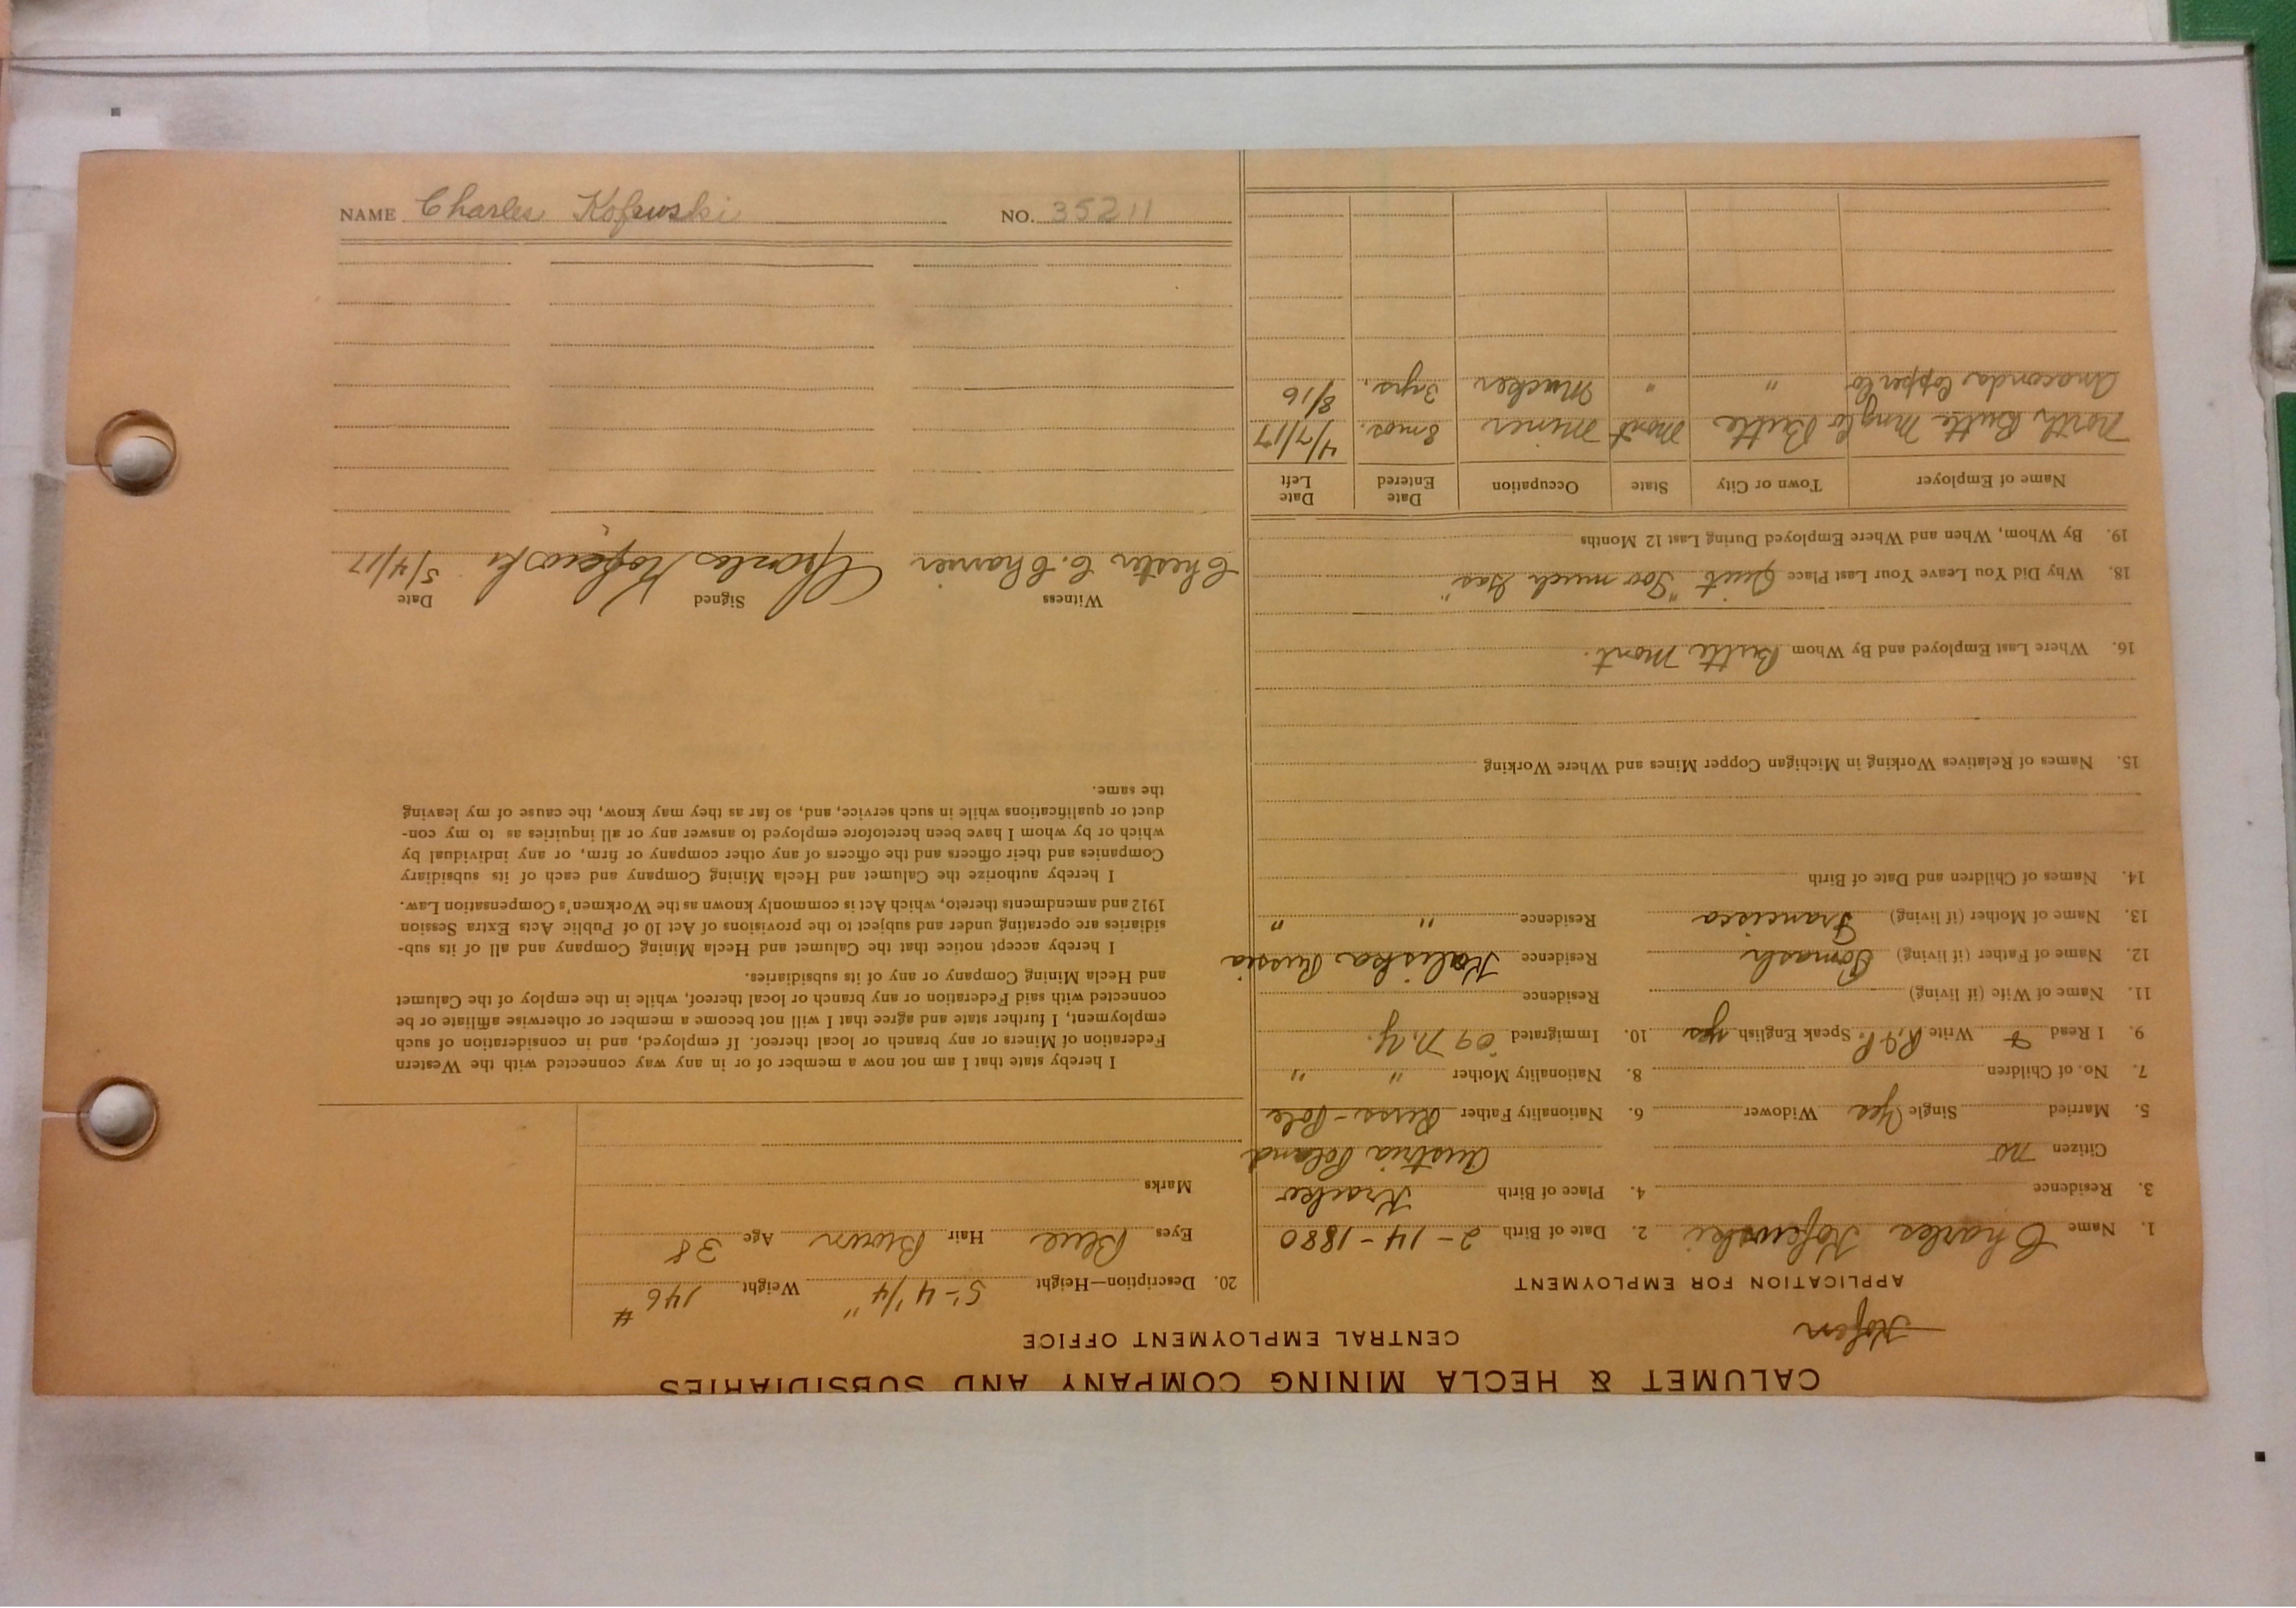 CALUMET & HECLA MINING COMPANY AND SUBSIDIARIES
CENTRAL EMPLOYMENT OFFICE
APPLICATION FOR EMPLOYMENT
1. Name Charles Kofewski
2. Date of Birth 2-14-1880
3. Residence
4. Place of Birth
Austria Poland
Citizen no
5. Married Single Yes Widower
6. Nationality Father Russ-Pole
7. No. of Children
8. Nationality Mother " "
9. I Read & Write R.&P. Speak English yes
10. Immigrated '09 N.Y.
11. Name of Wife (if living) Residence
12. Name of Father (if living) Tomash Residence Kaliska Russia
13. Name of Mother (if living) Francisca Residence " "
14. Names of Children and Date of Birth
15. Names of Relatives Working in Michigan Copper Mines and Where Working
16. Where Last Employed and By Whom Butte Mont.
18. Why Did You Leave Your Last Place Quit "Too much Gas"
19. By Whom, When and Where Employed During Last 12 Months
Name of Employer Town or City State Occupation Date Entered Date Left
North Butte Mng Co Butte Mont Miner 8 mos. 4/7/17
Anaconda Copper Co " " Mucker 3 yrs. 8/16
20. Description—Height 5'-4 1/4" Weight 146 #
Eyes Blue Hair Brown Age 38
Marks
I hereby state that I am not now a member of or in any way connected with the Western
Federation of Miners or any branch or local thereof. If employed, and in consideration of such
employment, I further state and agree that I will not become a member or otherwise affiliate or be
connected with said Federation or any branch or local thereof, while in the employ of the Calumet
and Hecla Mining Company or any of its subsidiaries.
I hereby accept notice that the Calumet and Hecla Mining Company and all of its sub-
sidiaries are operating under and subject to the provisions of Act 10 of Public Acts Extra Session
1912 and amendments thereto, which Act is commonly known as the Workmen's Compensation Law.
I hereby authorize the Calumet and Hecla Mining Company and each of its subsidiary
Companies and their officers and the officers of any other company or firm, or any individual by
which or by whom I have been heretofore employed to answer any or all inquiries as to my con-
duct or qualifications while in such service, and, so far as they may know, the cause of my leaving
the same.
Witness Signed Date
Chester C. Charles Kofewski 5/4/17
NAME Charles Kofewski NO. 35211